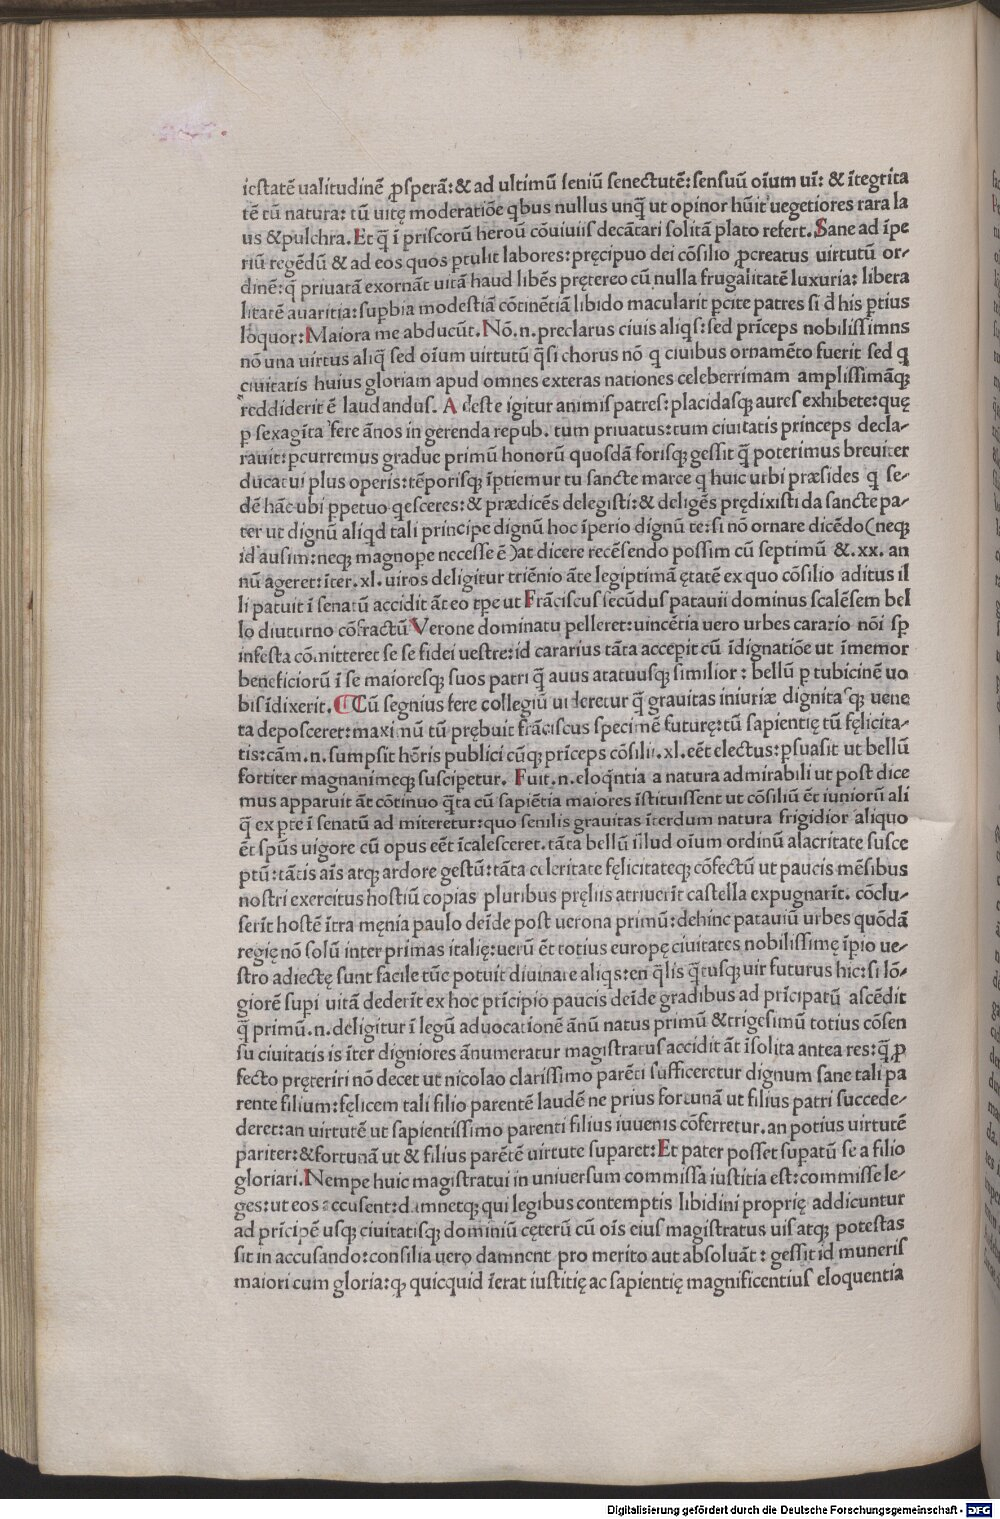 iestatē ualitudinē ꝓsperā: & ad ultimū seniū senectutē: sensuū oīum uī: & ītegrita
tē cū natura: tū uitę moderatiōe qbus nullus unq̄ ut opinor hūit uegetiores rara la
us & pulchra. Et q̄ ī priscorū heroū cōuiuiis decātari solitā plato refert. Sane ad īpe
riū regēdū & ad eos quos ꝑtulit labores: pręcipuo dei cōsilio ꝓcreatus uirtutū or-
dinē: q̄ priuatā exornāt uitā haud libēs prętereo cū nulla frugalitatē luxuria: libera
litatē auaritia: supbia modestiā cōtinētiā libido macularit ꝑcite patres si d̄ his ꝑtius
loquor: Maiora me abducūt. Nō.n. preclarus ciuis aliqs: sed prīceps nobilissimns
nō una uirtus aliq̄ sed oīum uirtutū q̄si chorus nō q ciuibus ornamēto fuerit sed q
ciuitatis huius gloriam apud omnes exteras nationes celeberrimam amplissimāqꝫ
reddiderit ē laudandus. A deste igitur animis patres: placidasqꝫ aures exhibete: quę
ꝑ sexagīta fere ānos in gerenda repub. tum priuatus: tum ciuitatis princeps decla-
rauit: pcurremus gradue primū honorū quosdā forisqꝫ gessit q̄ poterimus breuiter
ducatui plus operis: tēporisqꝫ īptiemur tu sancte marce q huic urbi præsides q se-
dē hāc ubi ppetuo qesceres: & prædicēs delegisti: & deligēs prędixisti da sancte pa-
ter ut dignū aliqd tali principe dignū hoc īperio dignū te: si nō ornare dicēdo (neqꝫ
id ausim: neqꝫ magnope necesse ē) at dicere recēsendo possim cū septimū &.xx. an
nū ageret: īter.xl. uiros deligitur triēnio āte legiptimā ętatē ex quo cōsilio aditus il
li patuit ī senatū accidit āt eo tpe ut Frāciscus secūdus patauii dominus scalēsem bel
lo diuturno cōfractū Verone dominatu pelleret: uincētia uero urbes carario nōi sꝑ
infesta cōmitteret se se fidei uestre: id cararius tāta accepit cū īdignatiōe ut īmemor
beneficiorū ī se maioresqꝫ suos patri q̄ auus atauusqꝫ similior: bellū ꝑ tubicinē uo
bis īdixerit. Cū segnius fere collegiū uideretur q̄ grauitas iniuriæ dignitasqꝫ uene
ta deposceret: maximū tū prębuit frāciscus specimē futurę: tū sapientię tū fęlicita-
tis: cām.n. sumpsit hōris publici cūqꝫ prīceps cōsilii.xl. eēt electus: psuasit ut bellū
fortiter magnanimeqꝫ susciperetur. Fuit.n. eloqntia a natura admirabili ut post dice
mus apparuit āt cōtinuo q̄ta cū sapiētia maiores īstituissent ut cōsiliū ēt iuniorū ali
q̄ ex pte ī senatū ad miteretur: quo senilis grauitas īterdum natura frigidior aliquo
ēt spūs uigore cū opus eēt īcalesceret. tāta bellū illud oīum ordinū alacritate susce
ptū: tātis aīs atqꝫ ardore gestū: tāta celeritate fęlicitateqꝫ cōfectū ut paucis mēsibus
nostri exercitus hostiū copias pluribus pręliis atriuerīt castella expugnarīt. cōclu-
serīt hostē ītra męnia paulo deīde post uerona primū: dehinc patauiū urbes quōdā
regię nō solū inter primas italię: uerū ēt totius europę ciuitates nobilissimę īpio ue-
stro adiectę sunt facile tūc potuit diuinare aliqs: en q̄lis q̄tusqꝫ uir futurus hic: si lō-
giorē supi uitā dederīt ex hoc prīcipio paucis deīde gradibus ad prīcipatū ascēdit
q̄ primū.n. deligitur ī legū aduocationē ānū natus primū & trigesimū totius cōsen
su ciuitatis is īter digniores ānumeratur magistratus accidit āt īsolita antea res: q̄ ꝓ
fecto pręteriri nō decet ut nicolao clarissimo parēti sufficeretur dignum sane tali pa
rente filium: fęlicem tali filio parentē laudē ne prius fortunā ut filius patri succede-
deret: an uirtutē ut sapientissimo parenti filius iuuenis cōferretur. an potius uirtutē
pariter: & fortunā ut & filius parētē uirtute suparet: Et pater posset supatū se a filio
gloriari. Nempe huic magistratui in uniuersum commissa iustitia est: commisse le-
ges: ut eos accusent: damnetqꝫ qui legibus contemptis libidini proprię addicuntur
ad prīcipē usqꝫ ciuitatisqꝫ dominiū cęterū cū oīs eius magistratus uis atqꝫ potestas
sit in accusando: consilia uero damnent pro merito aut absoluāt: gessit id muneris
maiori cum gloria: qꝫ quicquid īerat iustitię ac sapientię magnificentius eloquentia
Digitalisierung gefördert durch die Deutsche Forschungsgemeinschaft - DFG